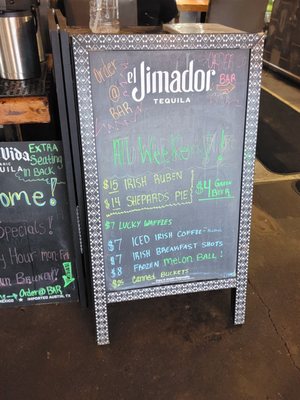 Vida
EXTRA
Seating
in Back
ome!
Specials!
Order @ BAR
Order
@
BAR
el Jimador
TEQUILA
BAR
All Weekend
$15 IRISH RUBEN
$14 SHEPARDS PIE
$4 Green
BEER
$7 LUCKY WAFFLES
$7 ICED IRISH COFFEE
$7 IRISH BREAKFAST SHOTS
$8 FROZEN MELON BALL!
$25 Canned Buckets